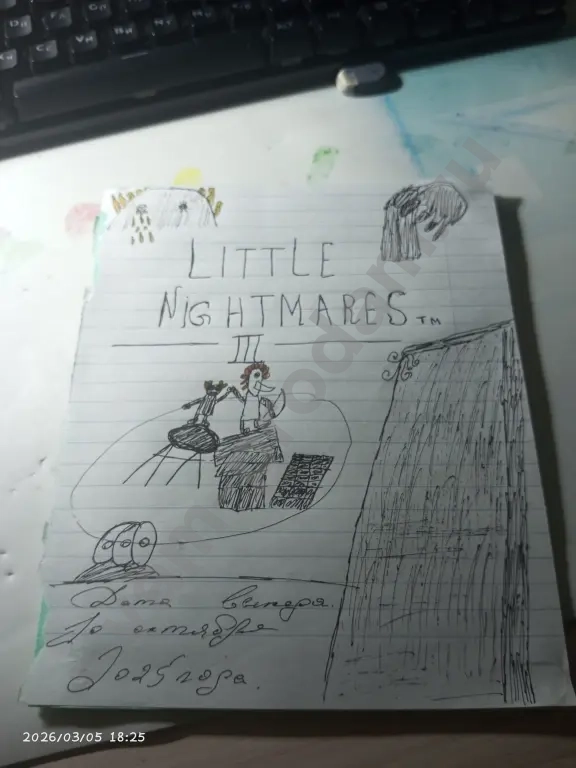 LITTLE
NIGHTMARES TM
III
Дата выхода.
10 октября
2025 года.
2026/03/05 18:25